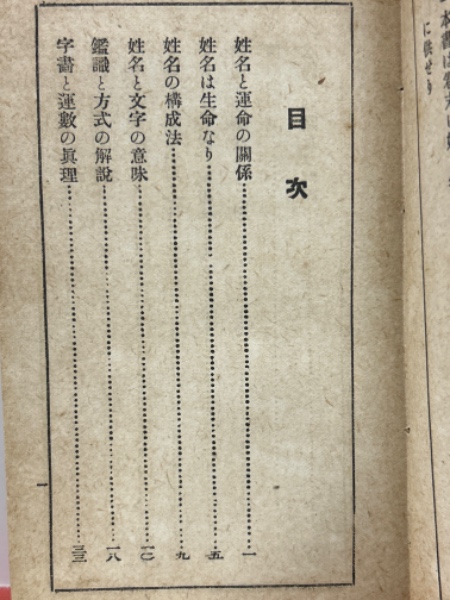 目次
姓名と運命の關係……一
姓名は生命なり……五
姓名の構成法……九
姓名と文字の意味……一〇
鑑識と方式の解說……一八
字畫と運數の眞理……三三
一
に供せり